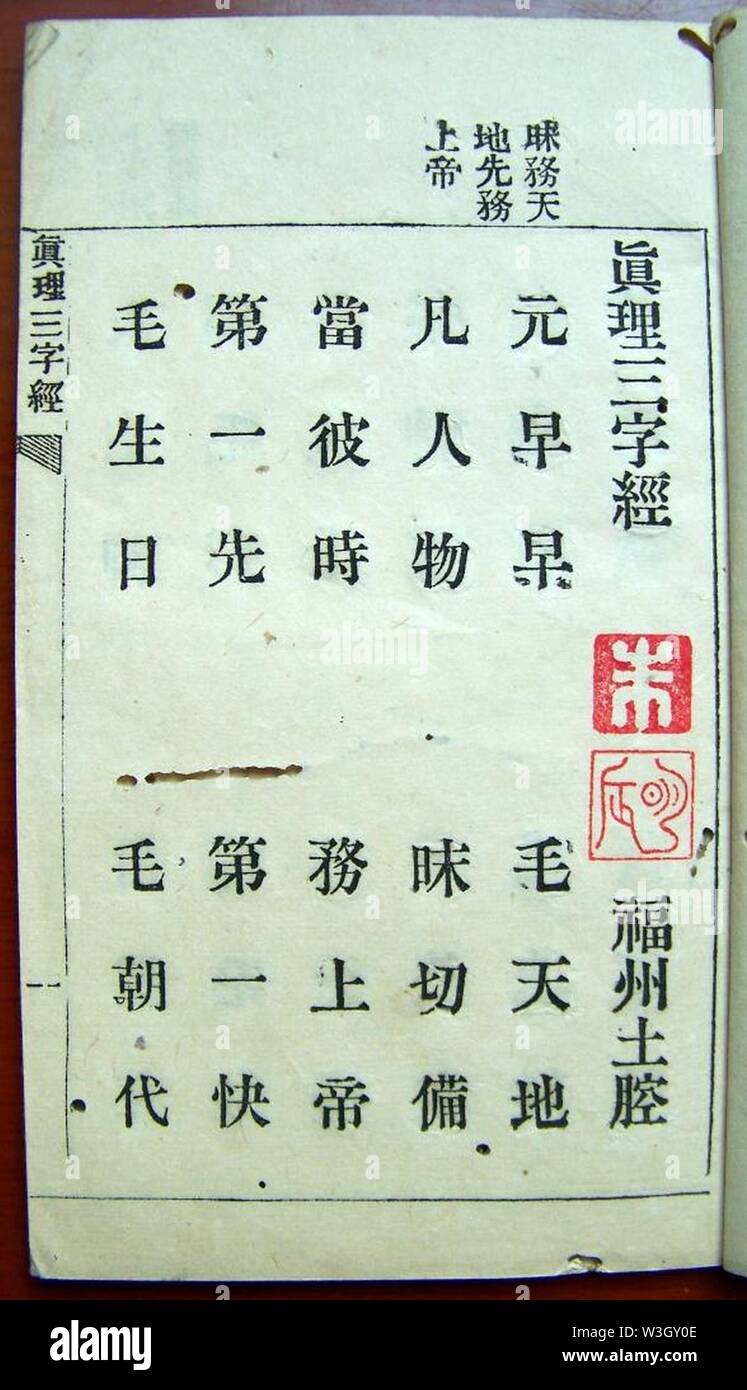 眛務天
地先務
上帝
眞理三字經
福州土腔
元早早 毛天地
凡人物 眛切備
當彼時 務上帝
第一先 第一快
毛生日 毛朝代
眞理三字經
一
alamy
alamy
alamy
alamy
a
a
a
a
a
a
a
alamy
Image ID: W3GY0E
www.alamy.com